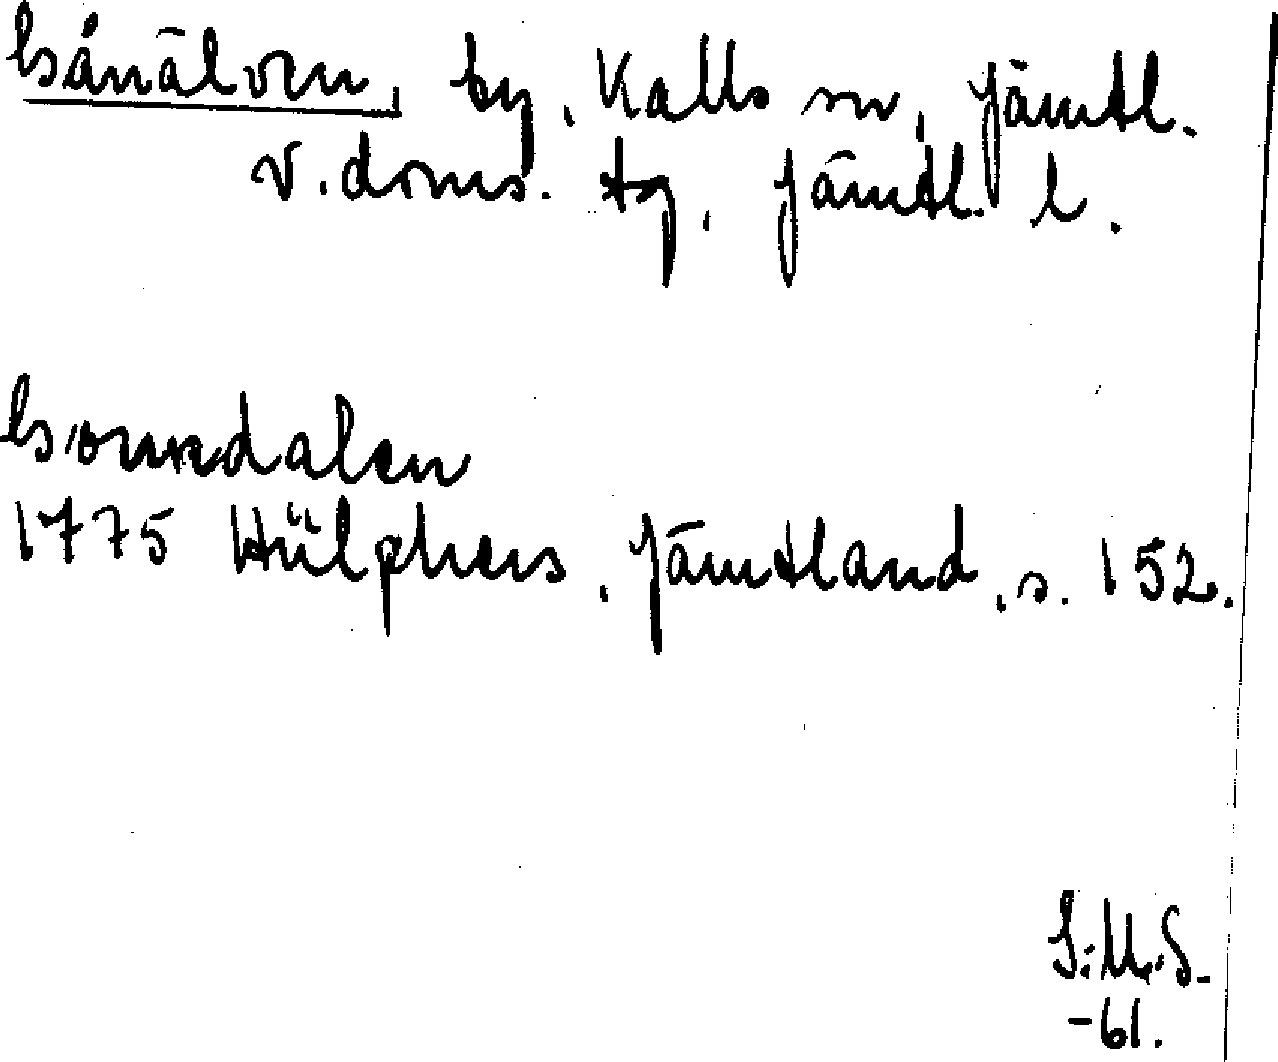 Gånälven, by, Kalls sn, Jämtl.
v. doms. tg, Jämtl. l.
1775 Hülphers, Jämtland, s. 152.
S.M.S.
-61.